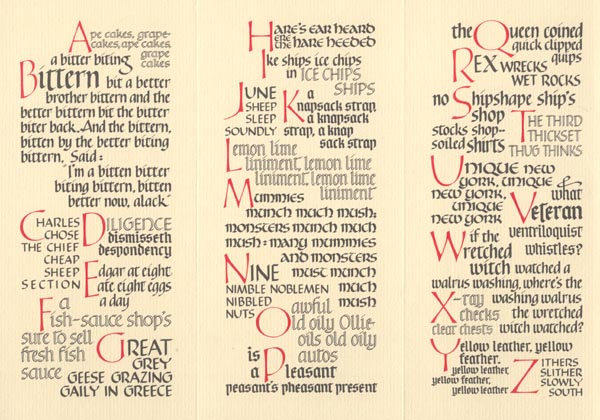 Ape cakes, grape-
cakes, ape cakes,
grape
cakes
a bitter biting
Bittern bit a better
brother bittern and the
better bittern bit the bitter
biter back. And the bittern,
bitten by the better biting
bittern, Said:
"I'm a bitten bitter
biting bittern, bitten
better now, alack."
CHARLES
CHOSE
THE CHIEF
CHEAP
SHEEP
SECTION
DILIGENCE
dismisseth
despondency
Edgar at eight
ate eight eggs
a day
a
Fish-sauce shop's
sure to sell
fresh fish
sauce
GREAT
GREY
GEESE GRAZING
GAILY IN GREECE
HARE'S EAR HEARD
ERE THE HARE HEEDED
Ike ships ice chips
in ICE CHIPS
SHIPS
JUNE
SHEEP
SLEEP
SOUNDLY
Ka
knapsack strap,
a knapsack
strap, a knap
sack strap
Lemon lime
liniment, lemon lime
liniment, lemon lime
liniment
Mummies
munch much mush;
monsters munch much
mush: many mummies
and monsters
must munch
much
mush
NINE
NIMBLE NOBLEMEN
NIBBLED
NUTS
awful
Old oily Ollie-
oils old oily
autos
is a Pleasant
peasant's pheasant present
the Queen coined
quick clipped
quips
REX WRECKS
WET ROCKS
no Shipshape ship's
shop
stocks shop-
soiled shirts
THE THIRD
THICKSET
THUG THINKS
UNIQUE NEW
YORK, UNIQUE
NEW YORK,
UNIQUE
NEW YORK
& what
Veteran
ventriloquist
whistles?
if the
Wretched
witch watched a
walrus washing, where's the
washing walrus
the wretched
witch watched?
X-ray
checks
clear chests
Yellow leather, yellow
feather,
yellow leather,
yellow feather,
yellow leather
ZITHERS
SLITHER
SLOWLY
SOUTH